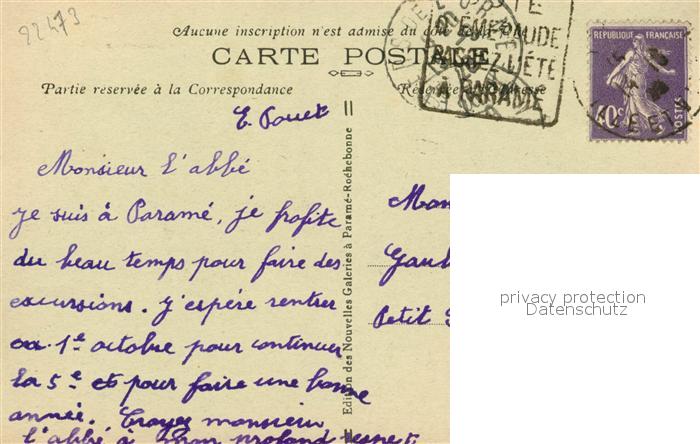 22473
Aucune inscription n'est admise du côté de la
CARTE POSTALE
Partie réservée à la Correspondance
Réservée Adresse
E. Pouet
Monsieur l'abbé
je suis à Paramé, je profite
du beau temps pour faire des
excursions. j'espère rentrer
au 1e octobre pour continuer
la 5e et pour faire une bonne
année. Croyez monsieur
l'abbé à mon profond respect
Edition des Nouvelles Galeries à Paramé-Rochebonne
TE
EMERAUDE
PASSEZ L'ÉTÉ
A PARAMÉ
40c
POSTES
Mon
Gaul
Petit
privacy protection
Datenschutz